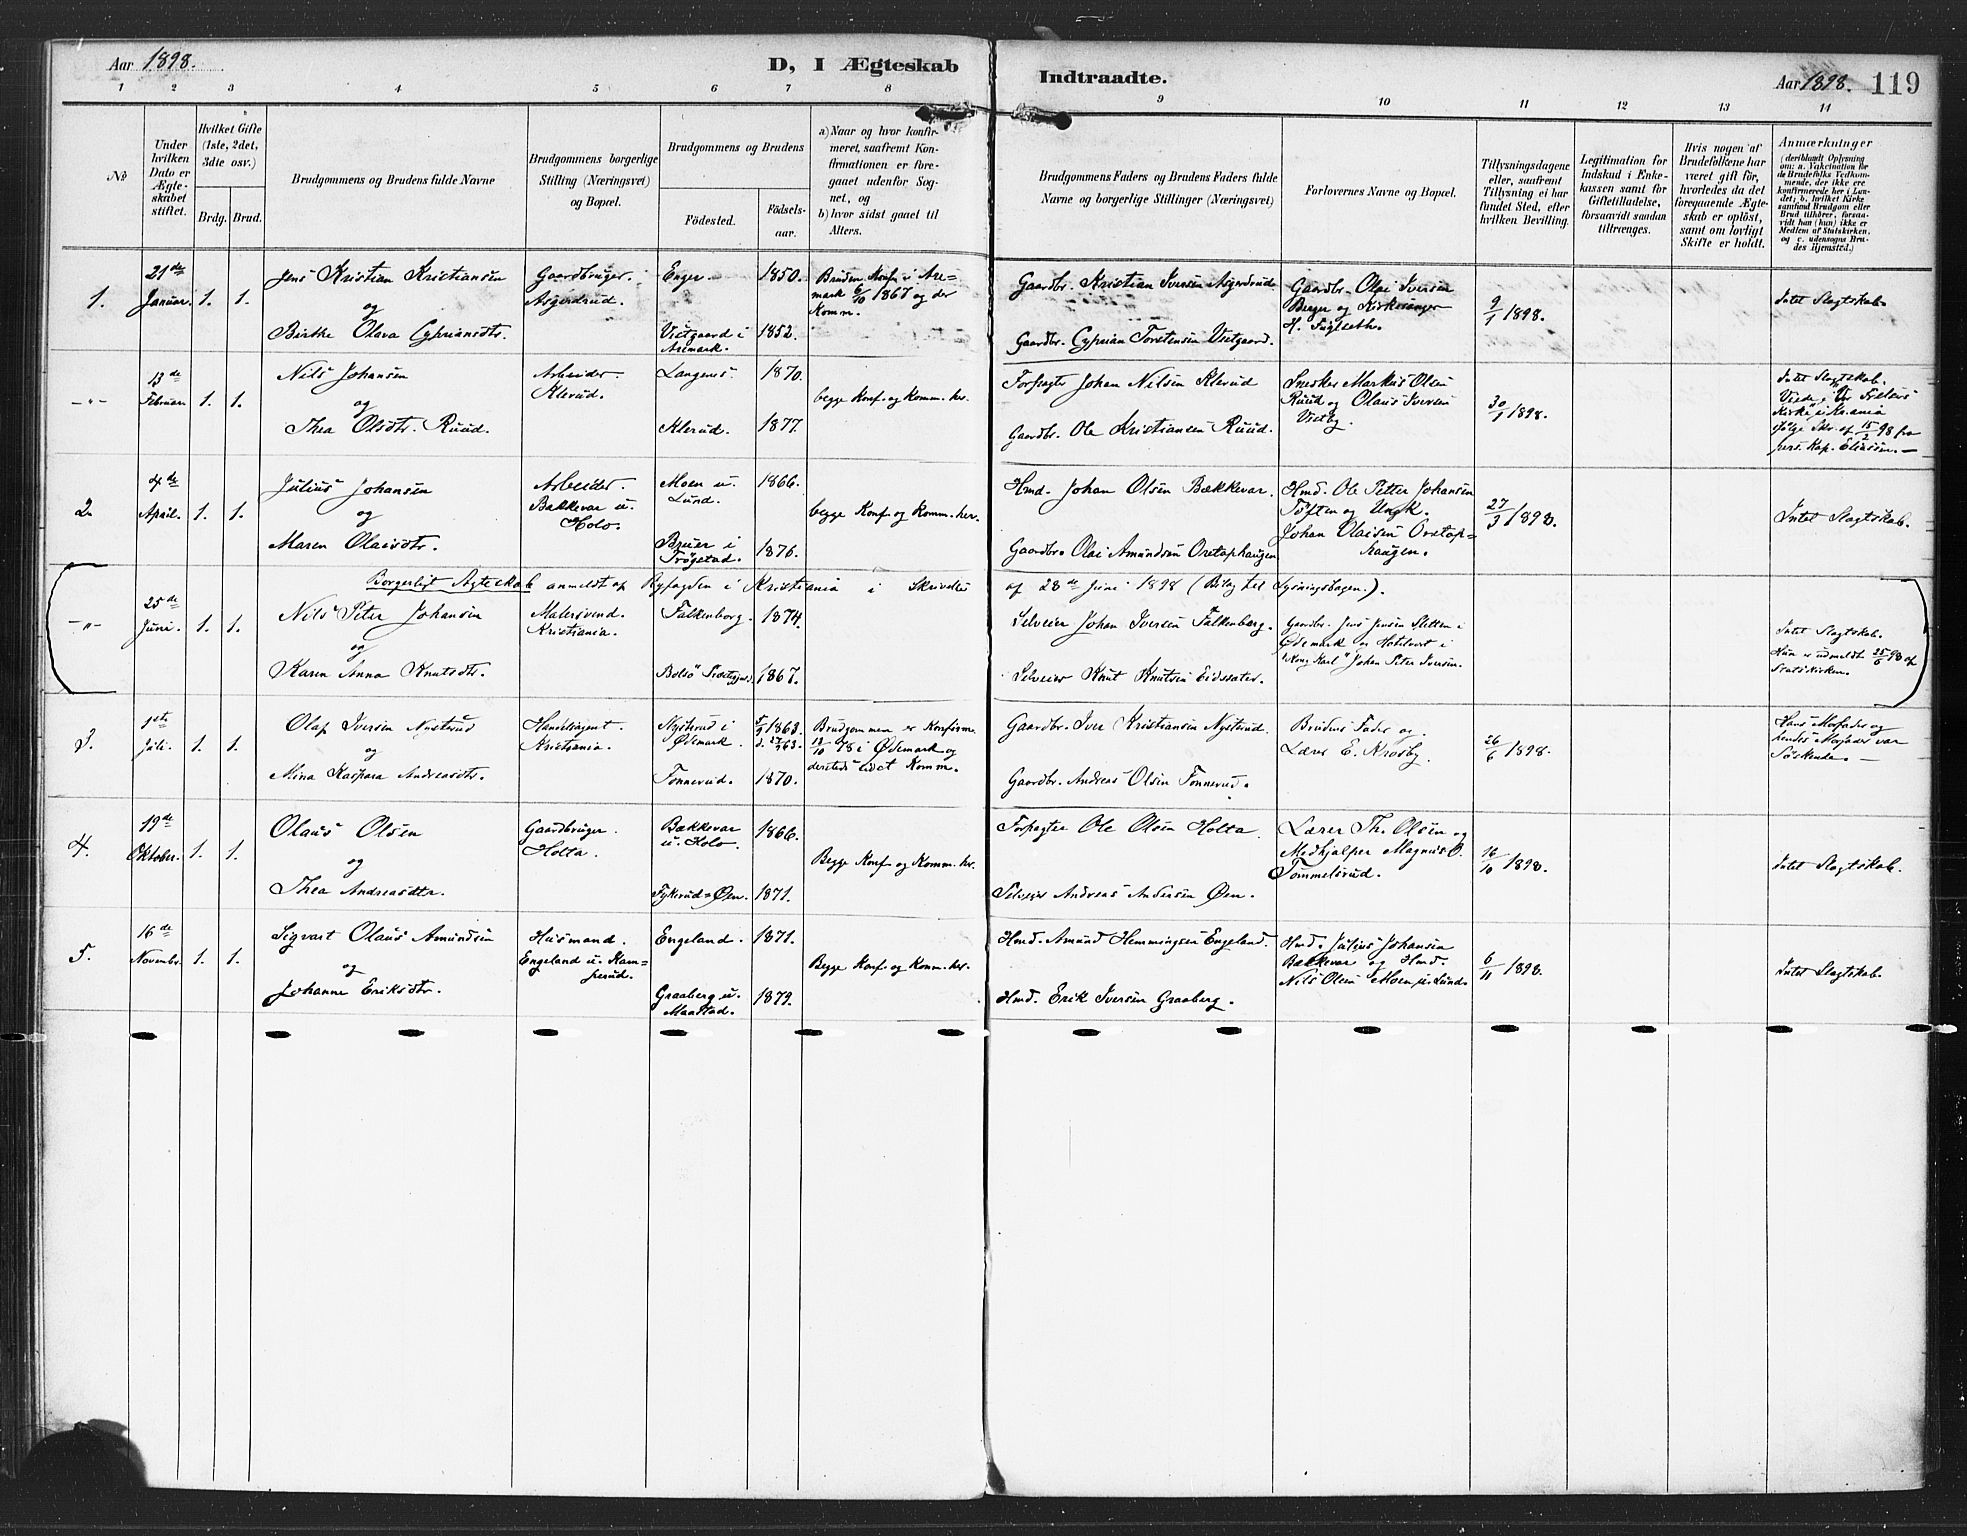 Aar 1898.
D, I Ægteskab
Indtraadte.
Aar 1898. 119
1 2 3 4 5 6 7 8 9 10 11 12 13 14
No
Under hvilken Dato er Ægteskabet stiftet.
Hvilket Gifte (1ste, 2det, 3die osv.)
Brdg. Brud.
Brudgommens og Brudens fulde Navne
Brudgommens borgerlige Stilling (Næringsvei) og Bopæl.
Brudgommens og Brudens
Fødested.
Fødselsaar.
a) Naar og hvor konfirmeret, saafremt Konfirmationen er foregaaet udenfor Sognet, og
b) hvor sidst gaaet til Alters.
Brudgommens Faders og Brudens Faders fulde Navne og borgerlige Stillinger (Næringsvei)
Forlovernes Navne og Bopæl.
Tillysningsdagene eller, saafremt Tillysning ei har fundet Sted, efter hvilken Bevilling.
Legitimation for Indskud i Enkekassen samt for Giftetilladelse, forsaavidt saadan tiltrænges.
Hvis nogen af Brudefolkene har været gift før, hvorledes da det foregaaende Ægteskab er opløst, samt om lovligt Skifte er holdt.
Anmærkninger
(deriblandt Oplysning om: a. Vakcination for de Brudefolks Vedkommende, der ikke ere konfirmerede her i Landet; b. hvilket Kirkesamfund Brudgom eller Brud tilhører, forsaavidt han (hun) ikke er Medlem af Statskirken, og c. udensogns Brudes Hjemsted.)
1.
21de Januar.
1. 1.
Jens Kristian Kristiansen
og
Birthe Olava Cypriansdtr.
Gaardbruger.
Asgerdrud.
Enger. 1850.
Vestgaard i Aremark. 1852.
Bruden Konf. i Aremark 6/10 1867 og der Komm.
Gaardbr. Kristian Iversen Asgerdrud
Gaardbr. Cyprian Torstensen Vestgaard.
Gaardbr. Olai Iversen
Berger og Kirkesanger
H. Fuglseth.
9/1 1898.
Intet Slagtskab.
— " —
13de Februar
1. 1.
Nils Johansen
og
Thea Olsdtr. Ruud.
Arbeider.
Klerud.
Langenes. 1870.
Klerud. 1877.
begge Konf. og Komm. her.
Forpagter Johan Nilsen Klerud
Gaardbr. Ole Kristiansen Ruud.
Snedker Markus Olsen
Ruud og Olaus Iversen
Vestby.
30/1 1898.
Intet Slagtskab.
Viede i "Vor Frelsers Kirke" i Kr.ania ifølge Skr. af 15/2 98 fra pers. Kap. Eliassen. —
2.
4de April.
1. 1.
Julius Johansen
og
Maren Olaisdtr.
Arbeider.
Bækkevar u.
Holo.
Moen u. Lund. 1866.
Bruer i Trøgstad. 1876.
begge Konf. og Komm. her.
Hmd. Johan Olsen Bækkevar.
Gaardbr. Olai Amundsen Oretaphaugen
Hmd. Ole Petter Johansen
Toften og Ungk.
Johan Olaisen Oretaphaugen.
27/3 1898.
Intet Slagtskab.
Borgerligt Ægteskab anmeldt af Byfogden i Kristiania i Skrivelse af 28de Juni 1898 (Bilag til Lysningsbogen.).
— " —
25de Juni.
1. 1.
Nils Peter Johansen
og
Karen Anna Knutsdtr.
Malersvend.
Kristiania.
Falkenborg. 1874.
Bolsö 1867.
Selveier Johan Iversen Falkenberg.
Selveier Knut Knutsen Eidssæter.
Gaardbr. Jens Jensen Sletten i
Ødemark og Hotelvert i
"Kong Karl" Johan Peter Iversen.
Intet Slagtskab.
Hun er udmeldt 25/6 98 af Statskirken.
3.
1ste Juli.
1. 1.
Olaf Iversen Nysterud
og
Mina Kaspara Andreasdtr.
Handelsagent.
Kristiania.
Nysterud i Ødemark. 1863.
Tonnerud. 1870.
Brudgommen er Konfirm. 13/10 78 i Ødemark og dersteds sidst Komm.
Gaardbr. Iver Kristiansen Nysterud.
Gaardbr. Andreas Olsen Tonnerud.
Brudens Fader og
Lærer E. Krosby.
26/6 1898.
Hans Morfader og hendes Morfader var Søskende. —
4.
19de Oktober.
1. 1.
Olaus Olsen
og
Thea Andreasdtr.
Gaardbruger.
Holta.
Bækkevar u. Holo. 1866.
Fykerud-Øen. 1871.
Begge Konf. og Komm. her.
Forpagter Ole Olsen Holta.
Selveier Andreas Andersen Øen.
Lærer Th. Olsen og
Medhjelper Magnus O.
Tommelsrud.
16/10 1898.
Intet Slagtskab.
5.
16de Novembr.
1. 1.
Sigvart Olaus Amundsen
og
Johanne Eriksdtr.
Husmand.
Engeland u. Kamperud.
Engeland. 1871.
Graaberg u. Maastad. 1879.
Begge Konf. og Komm. her.
Hmd. Amund Hemmingsen Engeland.
Hmd. Erik Iversen Graaberg.
Hmd. Julius Johansen
Bækkevar og Hmd.
Nils Olsen Moen u. Lund.
6/11 1898.
Intet Slagtskab.